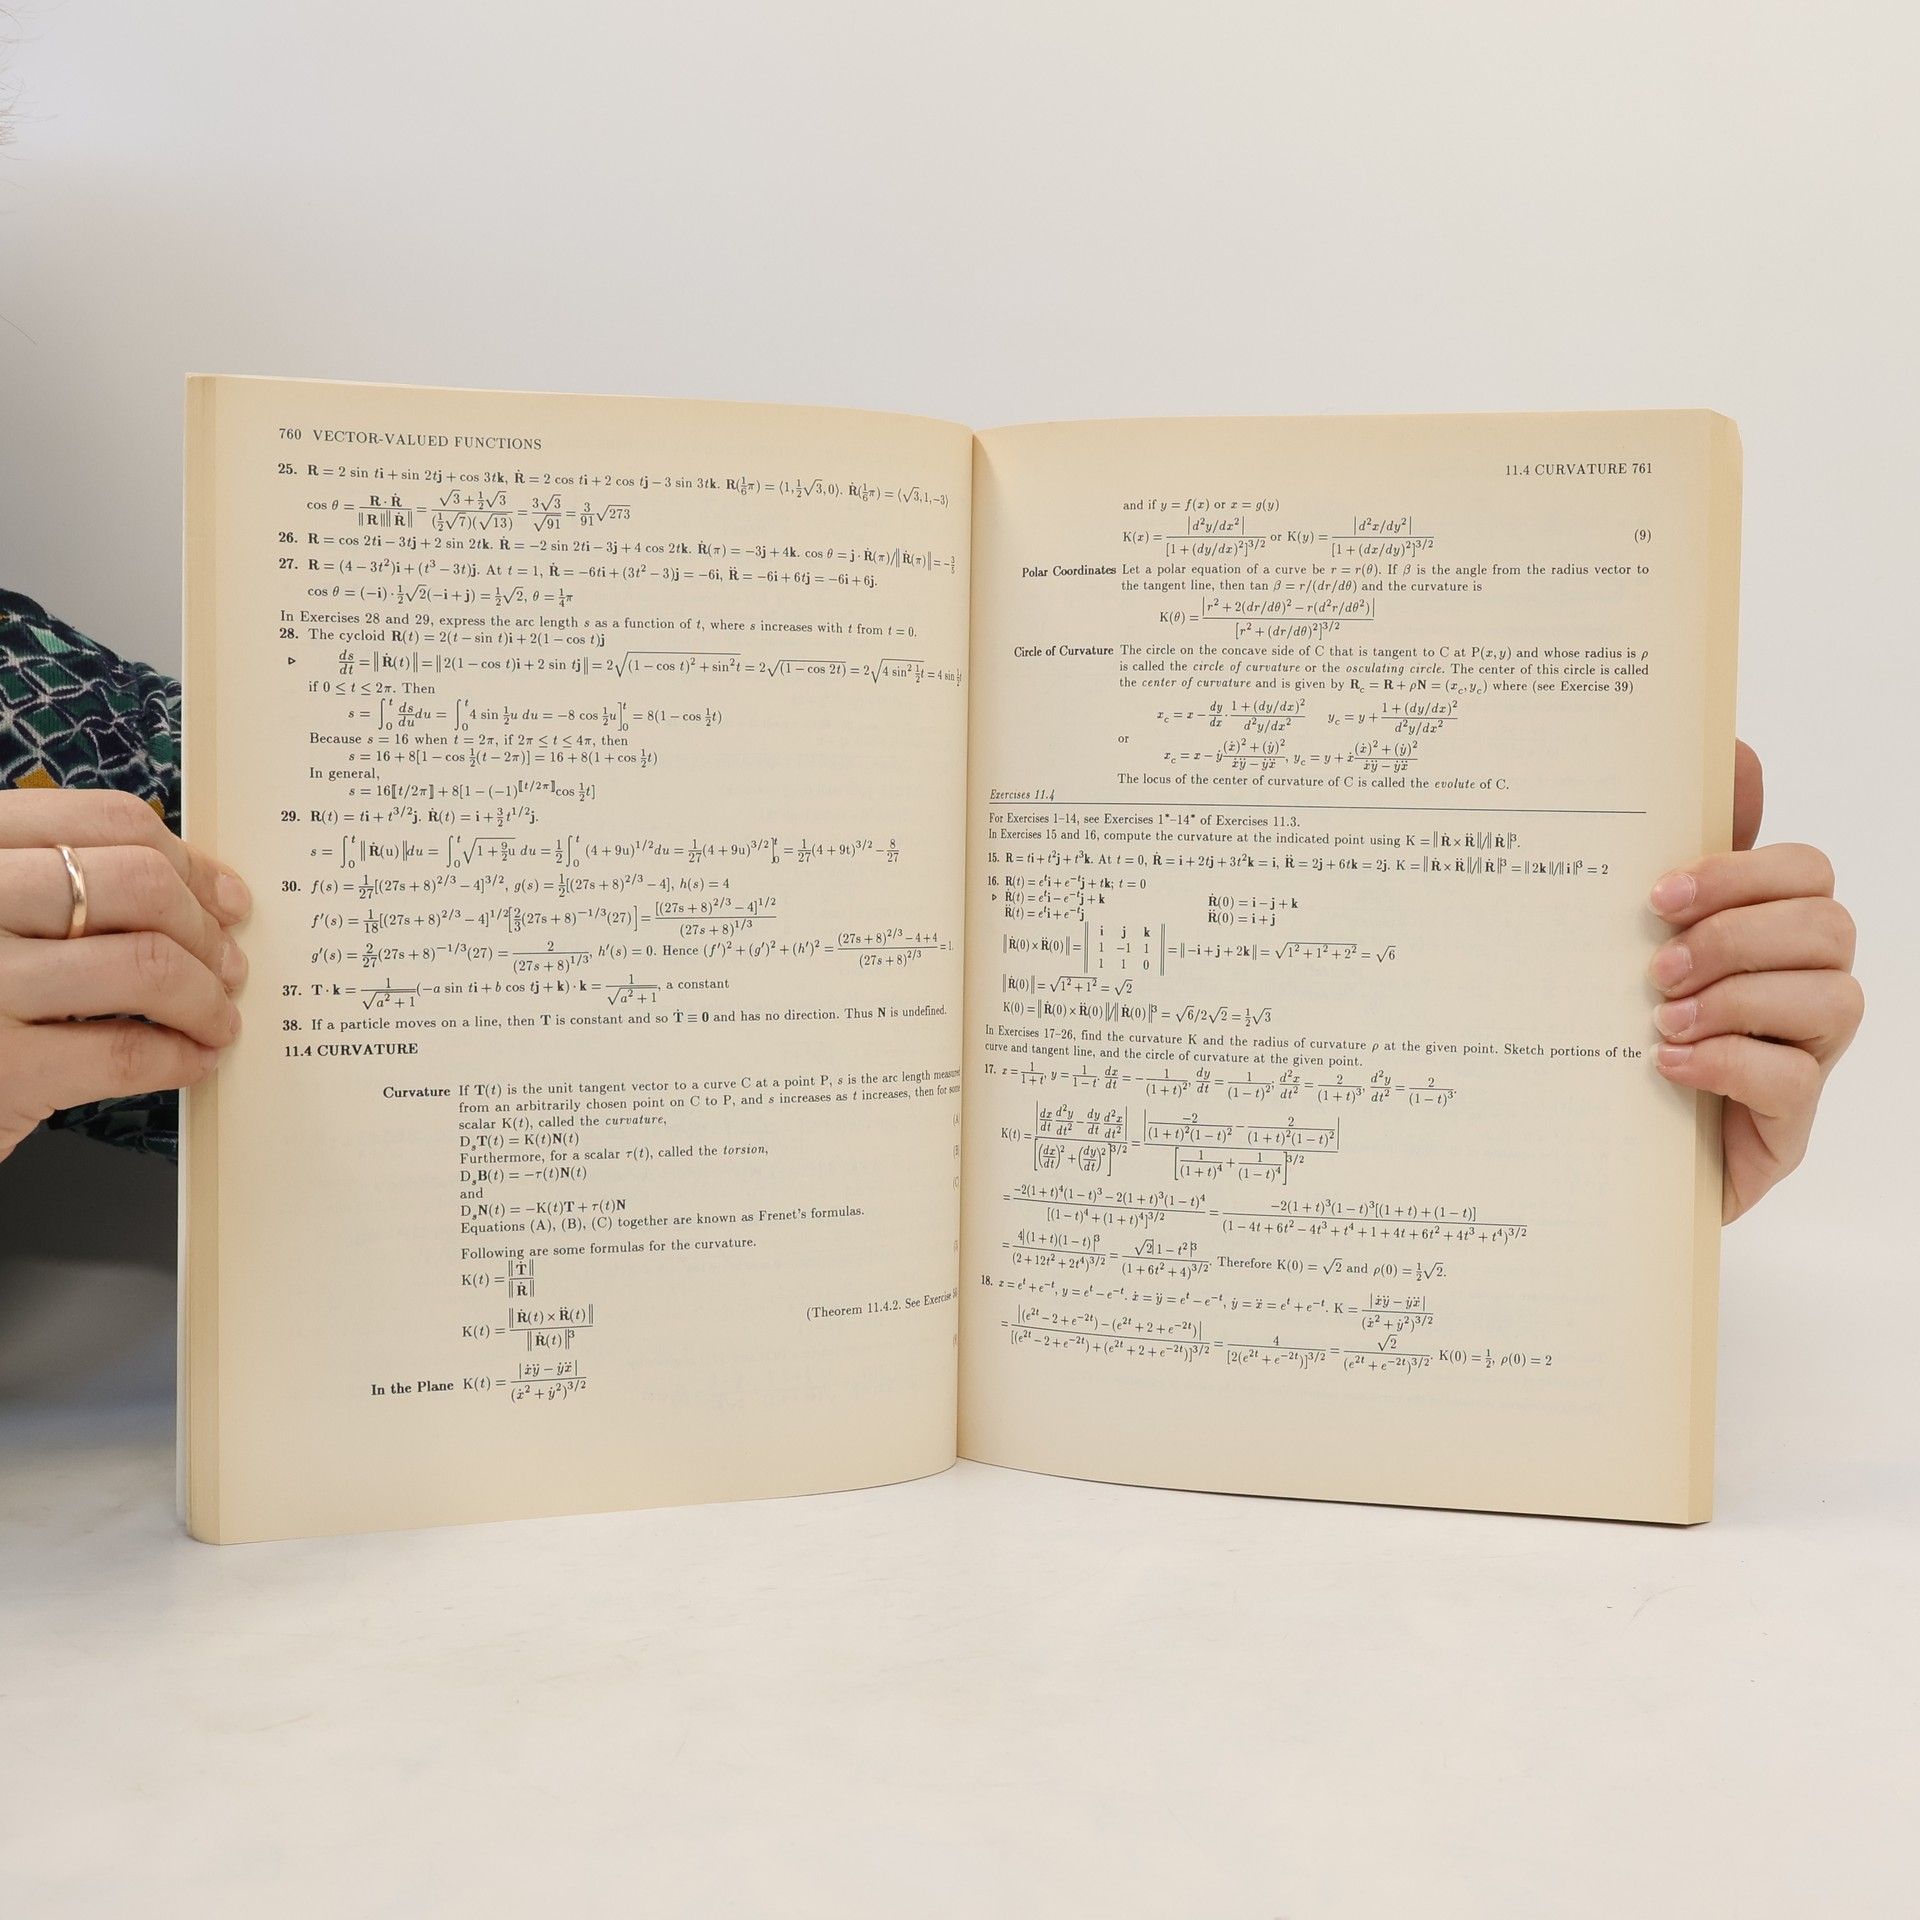 760 VECTOR-VALUED FUNCTIONS
25. R = 2 sin ti + sin 2tj + cos 3tk, Ṙ = 2 cos ti + 2 cos tj − 3 sin 3tk. R(1/6 π) = ⟨1, 1/2 √3, 0⟩. Ṙ(1/6 π) = ⟨√3, 1, −3⟩
cos θ = R · Ṙ / ‖R‖‖Ṙ‖ = (√3 + 1/2 √3) / (1/2 √7)(√13) = 3√3 / √91 = 3/91 √273
26. R = cos 2ti − 3tj + 2 sin 2tk. Ṙ = −2 sin 2ti − 3j + 4 cos 2tk. Ṙ(π) = −3j + 4k. cos θ = j · Ṙ(π)/‖Ṙ(π)‖ = −3/5
27. R = (4 − 3t²)i + (t³ − 3t)j. At t = 1, Ṙ = −6ti + (3t² − 3)j = −6i, R̈ = −6i + 6tj = −6i + 6j.
cos θ = (−i) · 1/2 √2(−i + j) = 1/2 √2, θ = 1/4 π
In Exercises 28 and 29, express the arc length s as a function of t, where s increases with t from t = 0.
28. The cycloid R(t) = 2(t − sin t)i + 2(1 − cos t)j
▹ ds/dt = ‖Ṙ(t)‖ = ‖2(1 − cos t)i + 2 sin tj‖ = 2√((1 − cos t)² + sin²t) = 2√(1 − cos 2t) = 2√(4 sin² 1/2 t) = 4 sin 1/2 t
if 0 ≤ t ≤ 2π. Then
s = ∫₀ᵗ ds/du du = ∫₀ᵗ 4 sin 1/2 u du = −8 cos 1/2 u]₀ᵗ = 8(1 − cos 1/2 t)
Because s = 16 when t = 2π, if 2π ≤ t ≤ 4π, then
s = 16 + 8[1 − cos 1/2 (t − 2π)] = 16 + 8(1 + cos 1/2 t)
In general,
s = 16⟦t/2π⟧ + 8[1 − (−1)^⟦t/2π⟧ cos 1/2 t]
29. R(t) = ti + t^3/2 j. Ṙ(t) = i + 3/2 t^1/2 j.
s = ∫₀ᵗ ‖Ṙ(u)‖du = ∫₀ᵗ √(1 + 9/2 u) du = 1/2 ∫₀ᵗ (4 + 9u)^1/2 du = 1/27 (4 + 9u)^3/2]₀ᵗ = 1/27 (4 + 9t)^3/2 − 8/27
30. f(s) = 1/27 [(27s + 8)^2/3 − 4]^3/2, g(s) = 1/2 [(27s + 8)^2/3 − 4], h(s) = 4
f′(s) = 1/18 [(27s + 8)^2/3 − 4]^1/2 [2/3 (27s + 8)^−1/3 (27)] = [(27s + 8)^2/3 − 4]^1/2 / (27s + 8)^1/3
g′(s) = 2/27 (27s + 8)^−1/3 (27) = 2 / (27s + 8)^1/3, h′(s) = 0. Hence (f′)² + (g′)² + (h′)² = ((27s + 8)^2/3 − 4 + 4) / (27s + 8)^2/3 = 1.
37. T · k = 1/√(a² + 1) (−a sin ti + b cos tj + k) · k = 1/√(a² + 1), a constant
38. If a particle moves on a line, then T is constant and so Ṫ ≡ 0 and has no direction. Thus N is undefined.
11.4 CURVATURE
Curvature If T(t) is the unit tangent vector to a curve C at a point P, s is the arc length measured
from an arbitrarily chosen point on C to P, and s increases as t increases, then for some
scalar K(t), called the curvature, (A)
DₛT(t) = K(t)N(t)
Furthermore, for a scalar τ(t), called the torsion, (B)
DₛB(t) = −τ(t)N(t)
and (C)
DₛN(t) = −K(t)T + τ(t)N
Equations (A), (B), (C) together are known as Frenet's formulas.
Following are some formulas for the curvature.
K(t) = ‖Ṫ‖ / ‖Ṙ‖
K(t) = ‖Ṙ(t) × R̈(t)‖ / ‖Ṙ(t)‖³ (Theorem 11.4.2. See Exercise
In the Plane K(t) = |ẋÿ − ẏẍ| / (ẋ² + ẏ²)^3/2
11.4 CURVATURE 761
and if y = f(x) or x = g(y)
K(x) = |d²y/dx²| / [1 + (dy/dx)²]^3/2 or K(y) = |d²x/dy²| / [1 + (dx/dy)²]^3/2 (9)
Polar Coordinates Let a polar equation of a curve be r = r(θ). If β is the angle from the radius vector to
the tangent line, then tan β = r/(dr/dθ) and the curvature is
K(θ) = |r² + 2(dr/dθ)² − r(d²r/dθ²)| / [r² + (dr/dθ)²]^3/2
Circle of Curvature The circle on the concave side of C that is tangent to C at P(x, y) and whose radius is ρ
is called the circle of curvature or the osculating circle. The center of this circle is called
the center of curvature and is given by R_c = R + ρN = (x_c, y_c) where (see Exercise 39)
x_c = x − dy/dx · (1 + (dy/dx)²) / d²y/dx² y_c = y + (1 + (dy/dx)²) / d²y/dx²
or
x_c = x − ẏ ((ẋ)² + (ẏ)²) / (ẋÿ − ẏẍ), y_c = y + ẋ ((ẋ)² + (ẏ)²) / (ẋÿ − ẏẍ)
The locus of the center of curvature of C is called the evolute of C.
Exercises 11.4
For Exercises 1–14, see Exercises 1*–14* of Exercises 11.3.
In Exercises 15 and 16, compute the curvature at the indicated point using K = ‖Ṙ × R̈‖/‖Ṙ‖³.
15. R = ti + t²j + t³k. At t = 0, Ṙ = i + 2tj + 3t²k = i, R̈ = 2j + 6tk = 2j. K = ‖Ṙ × R̈‖/‖Ṙ‖³ = ‖2k‖/‖i‖³ = 2
16. R(t) = eᵗi + e⁻ᵗj + tk; t = 0
▹ Ṙ(t) = eᵗi − e⁻ᵗj + k Ṙ(0) = i − j + k
R̈(t) = eᵗi + e⁻ᵗj R̈(0) = i + j
‖Ṙ(0) × R̈(0)‖ = ‖ i j k ; 1 −1 1 ; 1 1 0 ‖ = ‖−i + j + 2k‖ = √(1² + 1² + 2²) = √6
‖Ṙ(0)‖ = √(1² + 1²) = √2
K(0) = ‖Ṙ(0) × R̈(0)‖/‖Ṙ(0)‖³ = √6/2√2 = 1/2 √3
In Exercises 17–26, find the curvature K and the radius of curvature ρ at the given point. Sketch portions of the
curve and tangent line, and the circle of curvature at the given point.
17. x = 1/(1 + t), y = 1/(1 − t). dx/dt = −1/(1 + t)², dy/dt = 1/(1 − t)²; d²x/dt² = 2/(1 + t)³, d²y/dt² = 2/(1 − t)³.
K(t) = |dx/dt d²y/dt² − dy/dt d²x/dt²| / [(dx/dt)² + (dy/dt)²]^3/2 = |−2/((1 + t)²(1 − t)²) − 2/((1 + t)²(1 − t)²)| / [1/(1 + t)⁴ + 1/(1 − t)⁴]^3/2
= (−2(1 + t)⁴(1 − t)³ − 2(1 + t)³(1 − t)⁴) / [(1 − t)⁴ + (1 + t)⁴]^3/2 = −2(1 + t)³(1 − t)³[(1 + t) + (1 − t)] / (1 − 4t + 6t² − 4t³ + t⁴ + 1 + 4t + 6t² + 4t³ + t⁴)^3/2
= 4|(1 + t)(1 − t)|³ / (2 + 12t² + 2t⁴)^3/2 = √2|1 − t²|³ / (1 + 6t² + 4)^3/2. Therefore K(0) = √2 and ρ(0) = 1/2 √2.
18. x = eᵗ + e⁻ᵗ, y = eᵗ − e⁻ᵗ. ẋ = ÿ = eᵗ − e⁻ᵗ, ẏ = ẍ = eᵗ + e⁻ᵗ. K = |ẋÿ − ẏẍ| / (ẋ² + ẏ²)^3/2
= |(e²ᵗ − 2 + e⁻²ᵗ) − (e²ᵗ + 2 + e⁻²ᵗ)| / [(e²ᵗ − 2 + e⁻²ᵗ) + (e²ᵗ + 2 + e⁻²ᵗ)]^3/2 = 4 / [2(e²ᵗ + e⁻²ᵗ)]^3/2 = √2 / (e²ᵗ + e⁻²ᵗ)^3/2. K(0) = 1/2, ρ(0) = 2